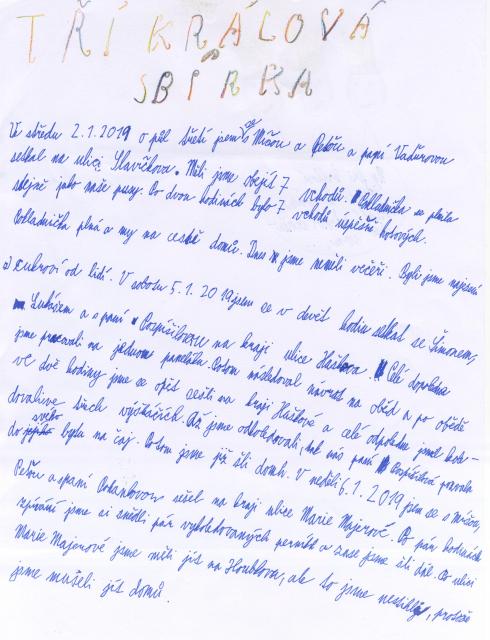 TŘÍ KRÁLOVÁ
SBÍRKA
Ve středu 2.1.2019 o půl třetí jsem se s Míšou a Péťou a paní Vaďurovou
setkal na ulici Slavíčkova. Měli jsme obejít 7 vchodů. Pokladnička se plnila
stejně jako naše pusy. Po dvou hodinách bylo 7 vchodů úspěšně hotových.
Pokladnička plná a my na cestě domů. Dnes jsme neměli večeři. Byli jsme najezení
z cukroví od lidí. V sobotu 5.1.2019 jsem se v devět hodin setkal se Šimonem,
Lukášem a s paní Pospíšilovou na kraji ulice Haškova. Celé dopoledne
jsme pracovali na jednom paneláku. Potom následoval návrat na oběd a po obědě
ve dvě hodiny jsme se opět sešli na kraji Haškové a celé odpoledne jsme koledovali ve
třech výškáčích. Až jsme odkoledovali, tak nás paní Pospíšilová pozvala
do svého bytu na čaj. Potom jsme již šli domů. V neděli 6.1.2019 jsem se s Míšou,
Péťou a s paní sešel na kraji ulice Marie Majerové. Po pár hodinách
zpívání jsme si snědli pár vykoledovaných perníků a zase jsme šli dál. Po ulici
Marie Majerové jsme měli jít na Houbkova, ale to jsme nestihly, protože
jsme museli jít domů.